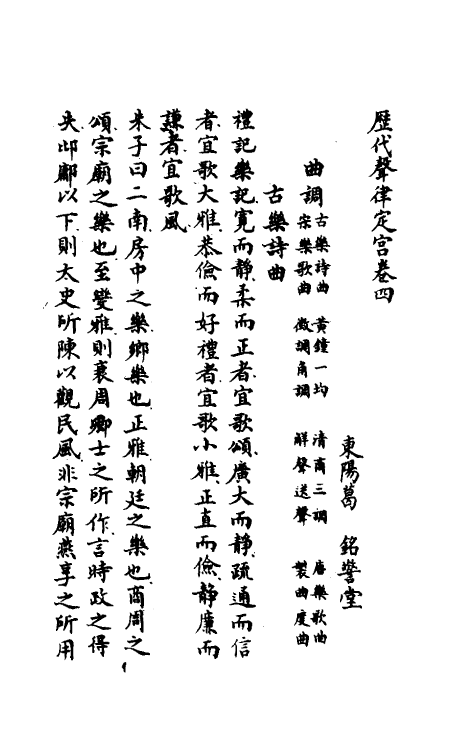 歷代聲律定宮卷四
東陽葛　銘警堂
曲調 古樂詩曲　黃鐘一均　清商三調　唐樂歌曲
宋樂歌曲　徵調角調　解聲送聲　製曲度曲
古樂詩曲
禮記樂記寬而靜柔而正者宜歌頌廣大而靜疏通而信
者宜歌大雅恭儉而好禮者宜歌小雅正直而儉靜廉而
謙者宜歌風
朱子曰二南房中之樂鄉樂也正雅朝廷之樂也商周之
頌宗廟之樂也至變雅則衰周卿士之所作言時政之得
失邶鄘以下則太史所陳以觀民風非宗廟燕享之所用